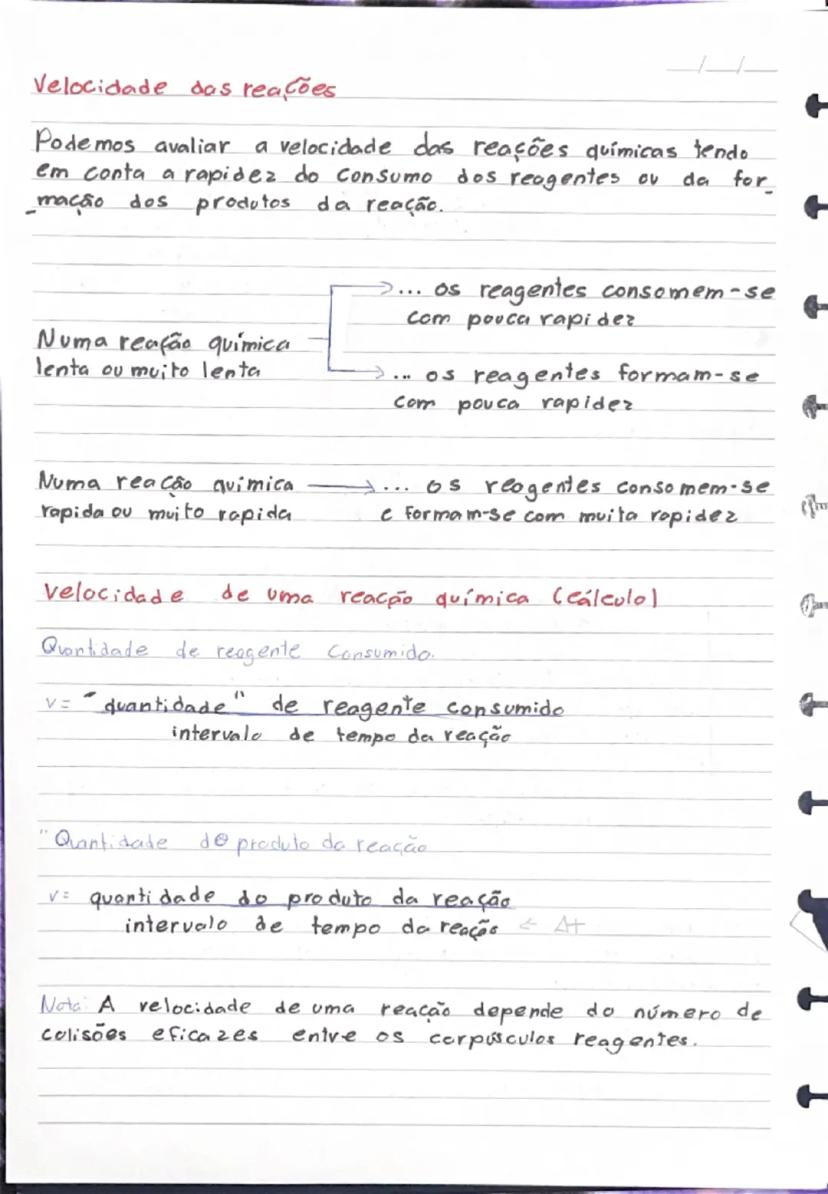 __/__/__
Velocidade das reações
Podemos avaliar a velocidade das reações químicas tendo
em conta a rapidez do consumo dos reagentes ou da for_
_mação dos produtos da reação.
... os reagentes consomem-se
com pouca rapidez
Numa reação química
lenta ou muito lenta
... os reagentes formam-se
com pouca rapidez
Numa reação quimica → ... os reagentes consomem-se
rapida ou muito rapida e formam-se com muita rapidez
Velocidade de uma reacção química (cálculo)
Quantidade de reagente consumido.
v= "quantidade" de reagente consumido
intervalo de tempo da reação
"Quantidade de produto da reação
v= quantidade do produto da reação
intervalo de tempo da reação ← Δt
Nota: A velocidade de uma reacção depende do número de
colisões eficazes entre os corpúsculos reagentes.